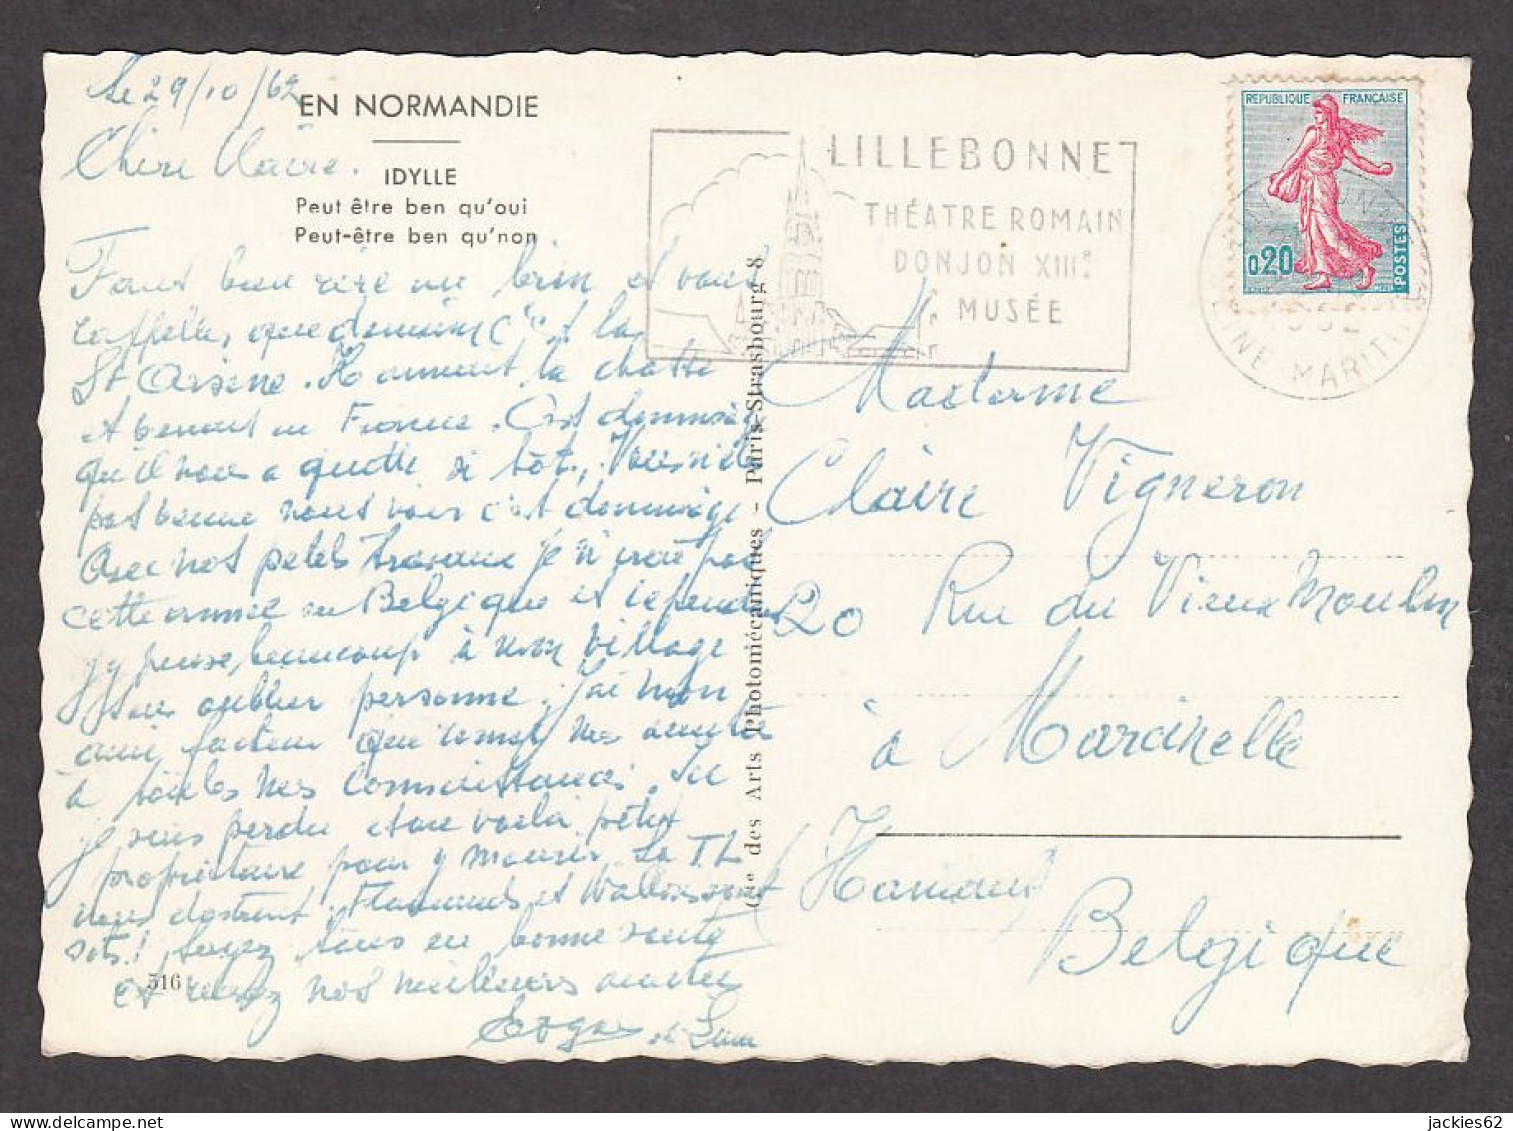 Le 29/10/62
EN NORMANDIE
Chère Claire.
IDYLLE
Peut être ben qu'oui
Peut-être ben qu'non
Faut bien rire un brin et vous
rappeller que demain c'est la
St Arsène.
et benout en France. C'est dommage
qu'il nous a quitté si tôt,
pas benue nous vous c'est dommage
Avec nos petits travaux je n'irai pas
cette année en Belgique et cependant
j'y pense, beaucoup à mon village
sans oublier personne. J'ai mon
ami facteur qui remet mes amitiés
à toutes mes connaissances. Ici
je suis perdu et me voilà petit
propriétaire pour y mourir. La TL
nous distrait. Flamands et Wallons sont
sots! Soyez tous en bonne santé
et recevez nos meilleurs amitiés
et Lina
516
Cie des Arts Photomécaniques - Paris-Strasbourg 8
LILLEBONNE
THÉATRE ROMAIN
DONJON XIIIe.
MUSÉE
REPUBLIQUE FRANÇAISE
0,20
POSTES
1962
SEINE-MARITIME
Madame
Claire Vigneron
20 Rue du Vieux Moulin
à Marcinelle
(Hainaut)
Belgique
jackies62